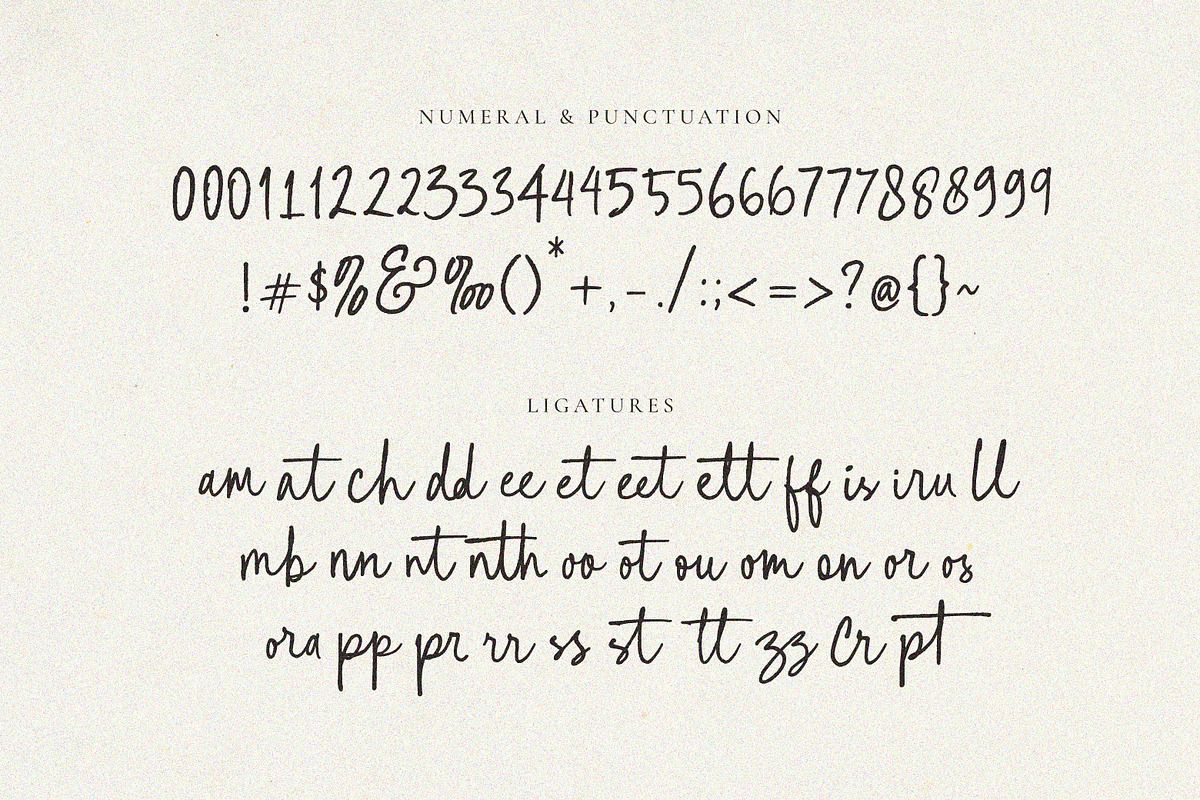 NUMERAL & PUNCTUATION
000111222333444555666777888999
!#$%&‰()*+,-./:;<=>?@{}~
LIGATURES
am at ch dd ee et eet ett ff is iru ll
mb nn nt nth oo ot ou om on or os
ora pp pr rr ss st tt zz Cr pt